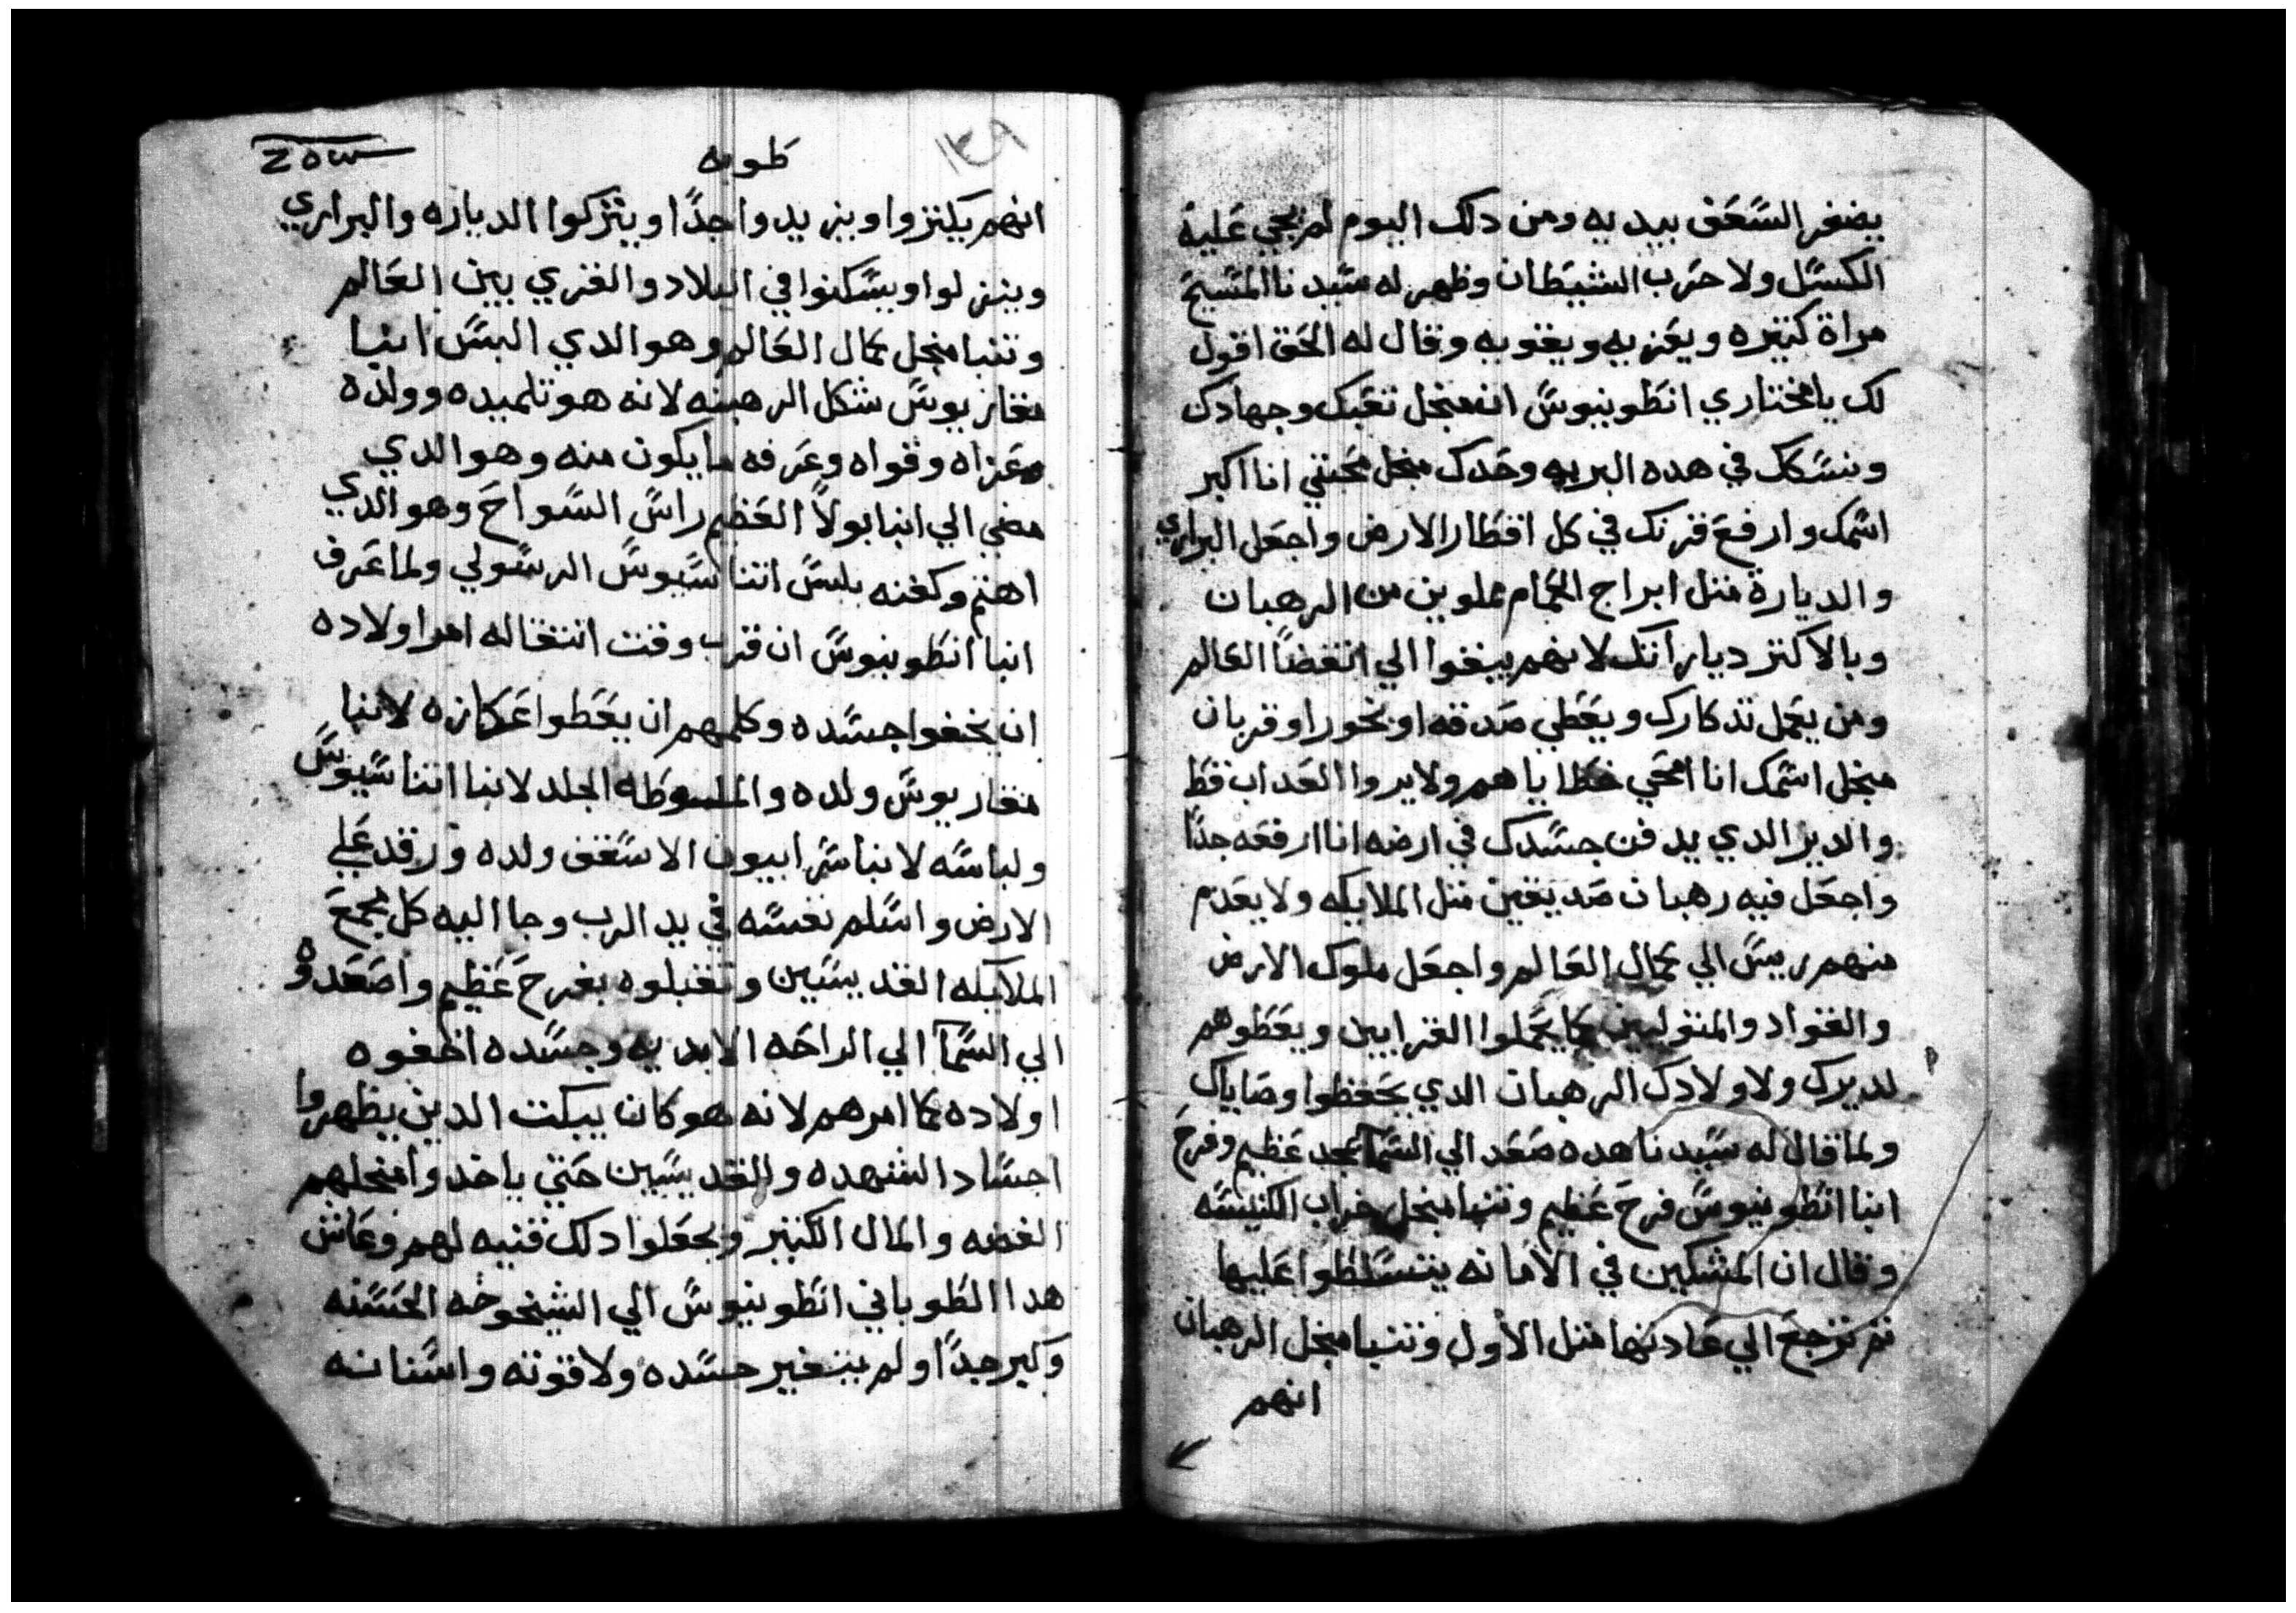 يضفر السعف بيديه ومن دلك اليوم لم يجي علية
الكسل ولا حرب الشيطان وظهر له سيدنا المسيح
مراة كتيره ويعزيه ويقويه وقال له الحق اقول
لك يا مختاري انطونيوس ان منجل تعبك وجهادك
ونسكك في هده البريه وحدك منجل محبتي انا اكبر
اسمك وارفع قرنك في كل اقطار الارض واجعل البراري
والديارة متل ابراج الحمام مملوين من الرهبان
وبالاكتر دياراتك لانهم يبقوا الي انقضا العالم
ومن يعمل تدكارك ويعطي صدقه او بخورا وقربان
منجل اسمك انا امحي خطاياهم ولا يروا العداب قط
والدير الدي يدفن جسدك في ارضه انا ارفعه جدًا
واجعل فيه رهبان صديقين متل الملايكه ولا يعدم
منهم رييس الي كمال العالم واجعل ملوك الارض
والقواد والمتوليين يحملوا القرابين ويعطوهم
لديرك ولاولادك الرهبان الدي يحفظوا وصاياك
ولما قال له سيدنا هده صعد الي السما بمجد عظيم وفرح
ابنا انطونيوس فرح عظيم وتنبا منجل خراب الكنيسه
وقال ان المشكين في الامانه يتسلطوا عليها
تم ترجع الي عادتها متل الاول وتنبا منجل الرهبان
انهم
١٤٩
طوبه
انهم يكتروا ويزيدوا جدًا ويتركوا الدياره والبراري
وينزلوا ويسكنوا في البلاد والقري بين العالم
وتنبا منجل كمال العالم وهو الدي البس انبا
مقاريوس شكل الرهبنه لانه هو تلميده وولده
وعزاه وقواه وعرفه ما يكون منه وهو الدي
مضي الي انبا بولا العظيم راس السواح وهو الدي
اهتم وكفنه بلبس اتناسيوس الرسولي ولما عرف
انبا انطونيوس ان قرب وقت انتقاله امر اولاده
ان يخفوا جسده وكلمهم ان يعطوا عكازه لانبا
مقاريوس ولده والملوطه الجلد لانبا اتناسيوس
ولباسه لانبا سرابيون الاسقف ولده ورقد علي
الارض واسلم نفسه في يد الرب وجا اليه كل مجمع
الملايكه القديسين وتقبلوه بفرح عظيم واصعدوه
الي السما الي الراحه الابديه وجسده اخفوه
اولاده كما امرهم لانه هو كان يبكت الدين يظهروا
اجساد الشهده والقديسين حتي ياخدوا منجلهم
الفضه والمال الكتير ويجعلوا دلك قنيه لهم وعاش
هدا الطوباني انطونيوس الي الشيخوخه الحسنه
وكبر جدًا ولم يتغير جسده ولا قوته واسنانه